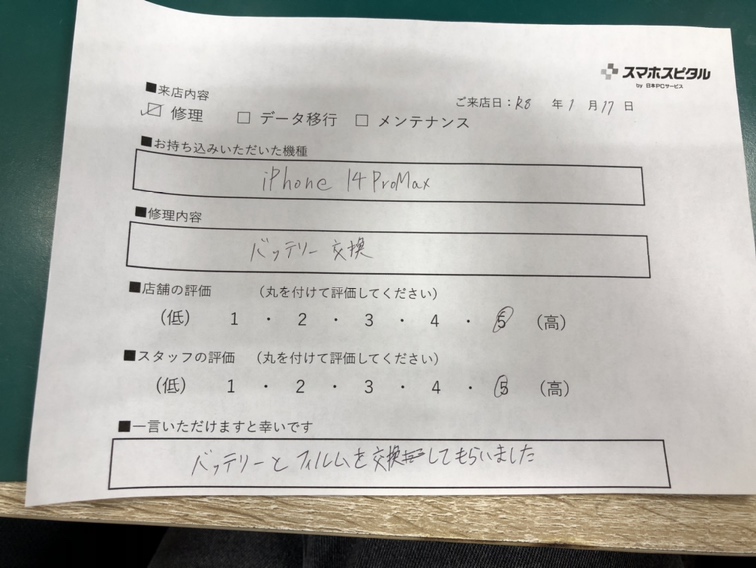 スマホスピタル
by 日本PCサービス
■来店内容
ご来店日：R8 年 1 月 17 日
☑ 修理 □ データ移行 □ メンテナンス
■お持ち込みいただいた機種
iPhone 14 ProMax
■修理内容
バッテリー 交換
■店舗の評価 （丸を付けて評価してください）
（低） 1 ・ 2 ・ 3 ・ 4 ・ 5 （高）
■スタッフの評価 （丸を付けて評価してください）
（低） 1 ・ 2 ・ 3 ・ 4 ・ 5 （高）
■一言いただけますと幸いです
バッテリーと フィルムを交換してもらいました